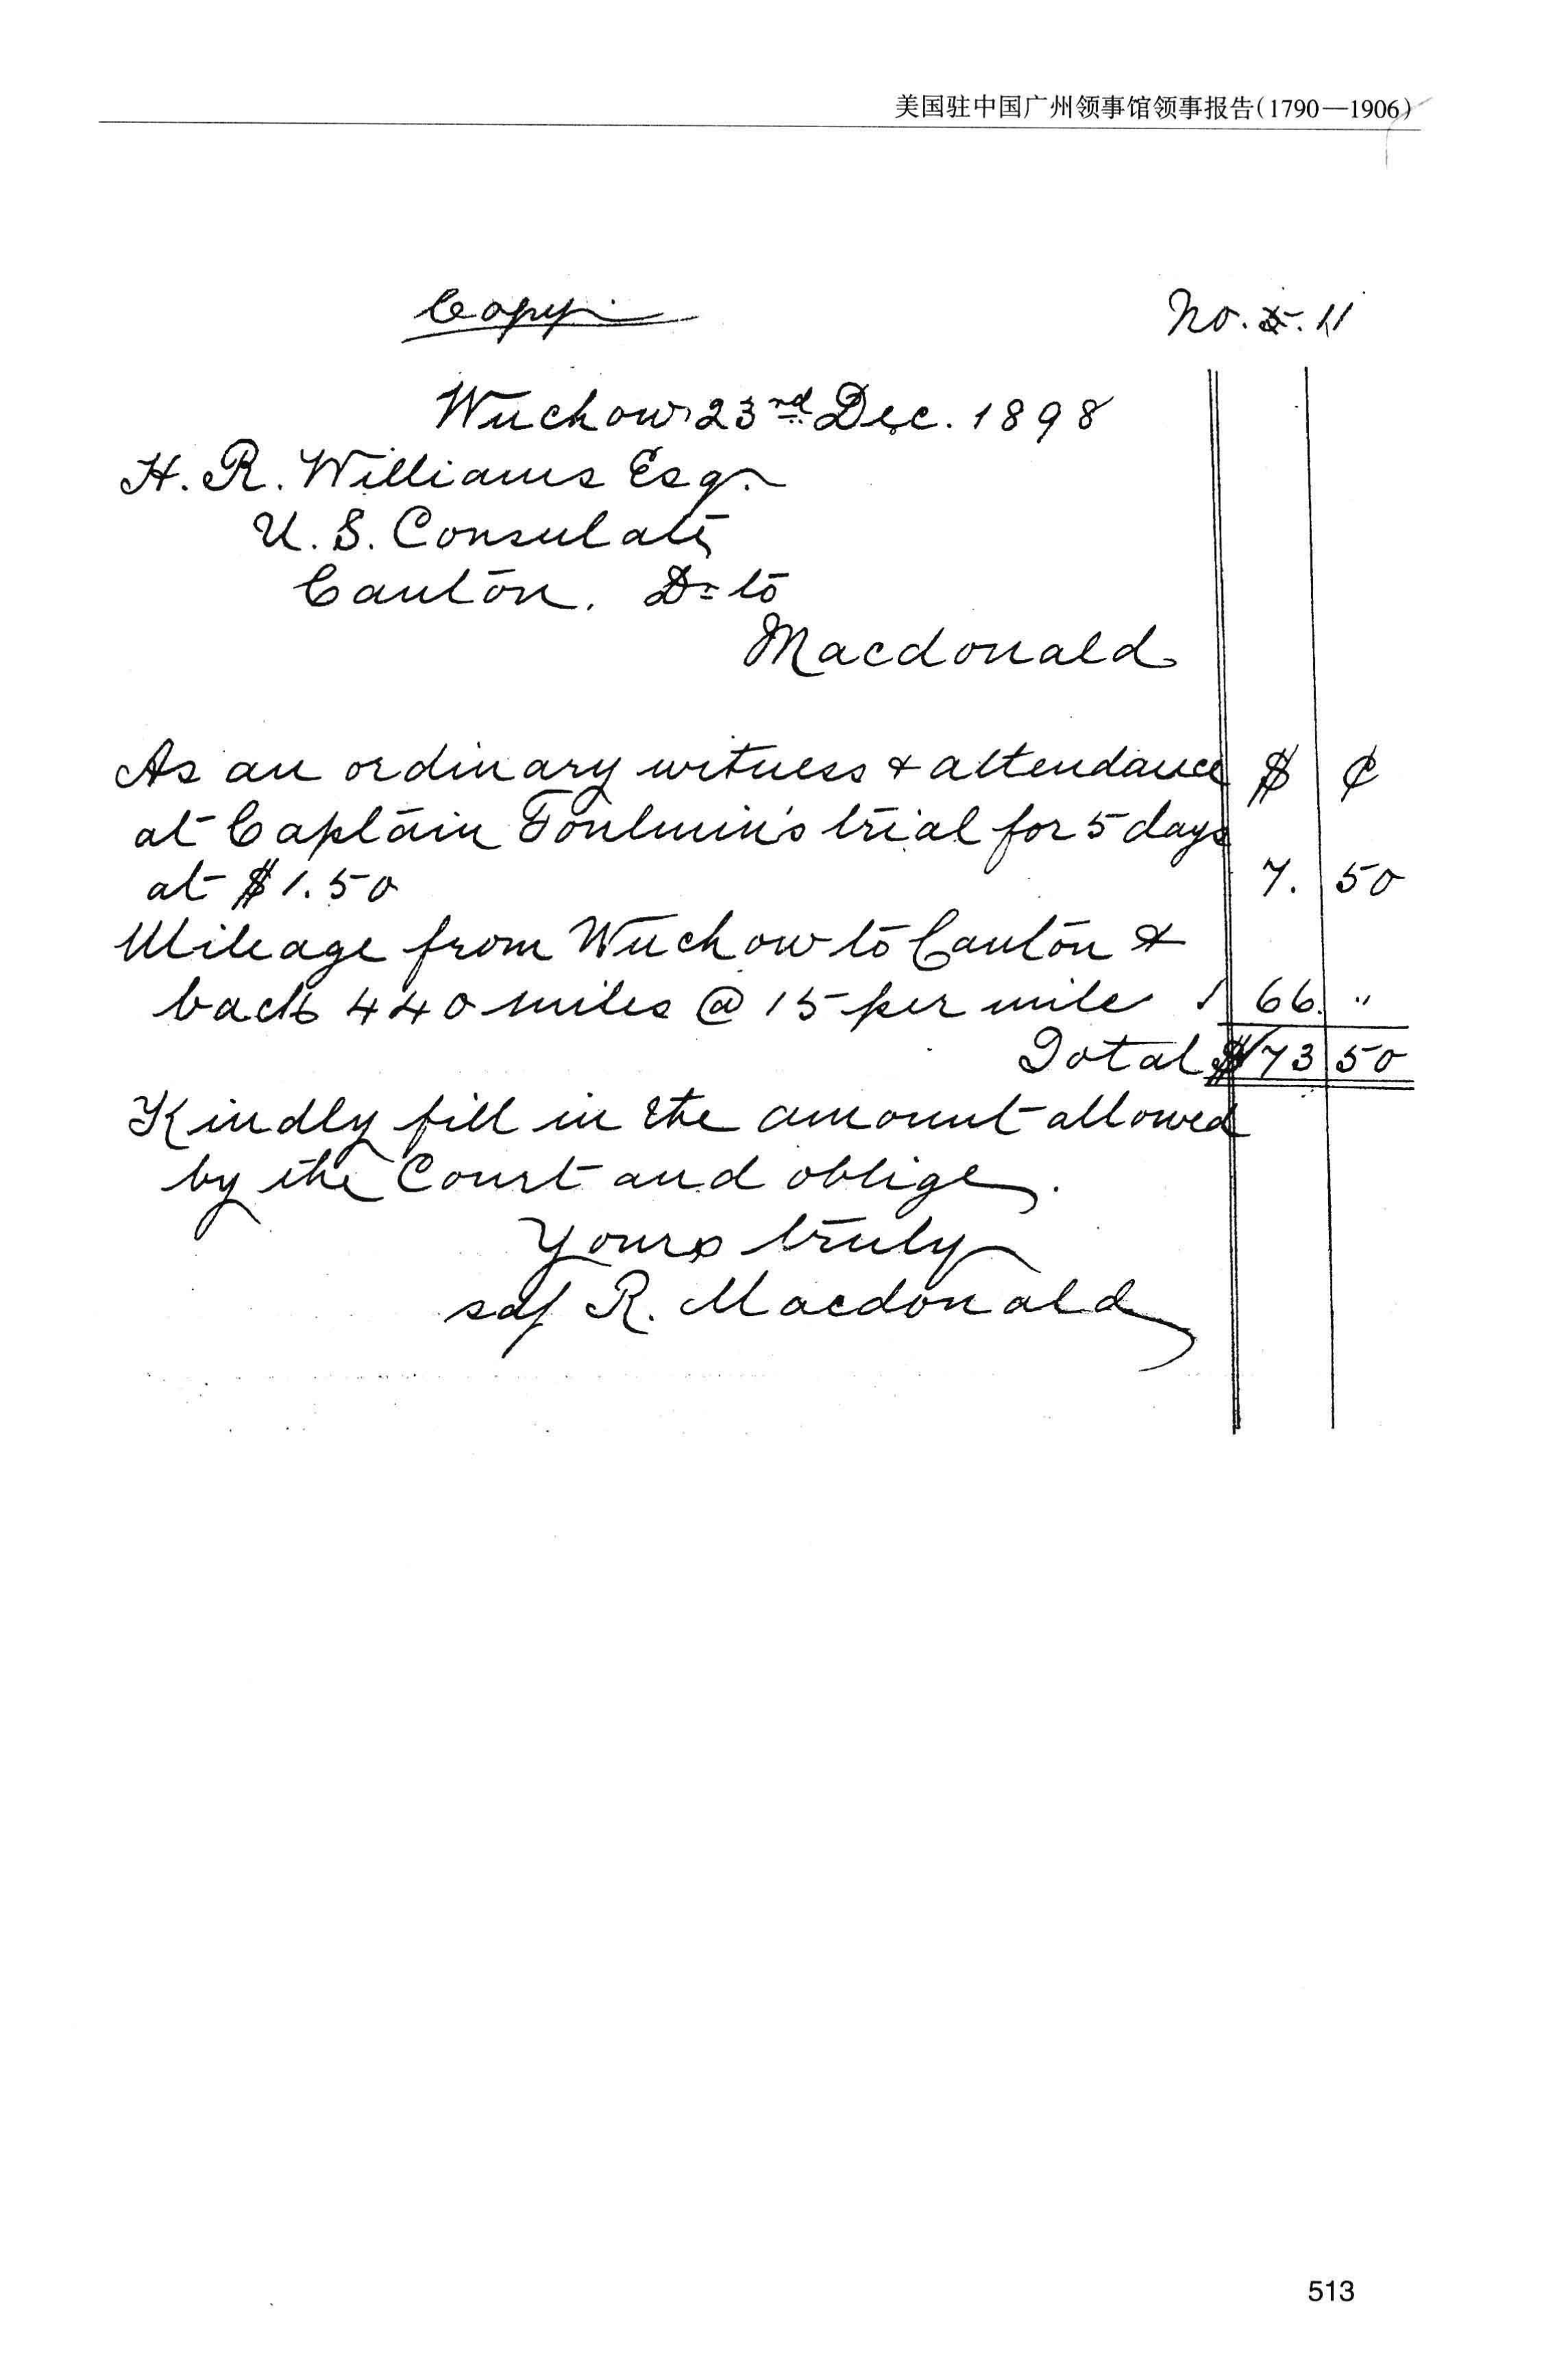 美国驻中国广州领事馆领事报告(1790—1906)
Copy
No. 5. 11
Wuchow 23rd Dec. 1898
H. R. Williams Esq.
U. S. Consulate
Canton. Dr to
Macdonald
As an ordinary witness & attendance $ ¢
at Captain Toulmin's trial for 5 days
at $1.50 7. 50
Mileage from Wuchow to Canton &
back 440 miles @ 15 per mile 66. "
Total $73 50
Kindly fill in the amount allowed
by the Court and oblige.
Yours truly
sd/ R. Macdonald
513